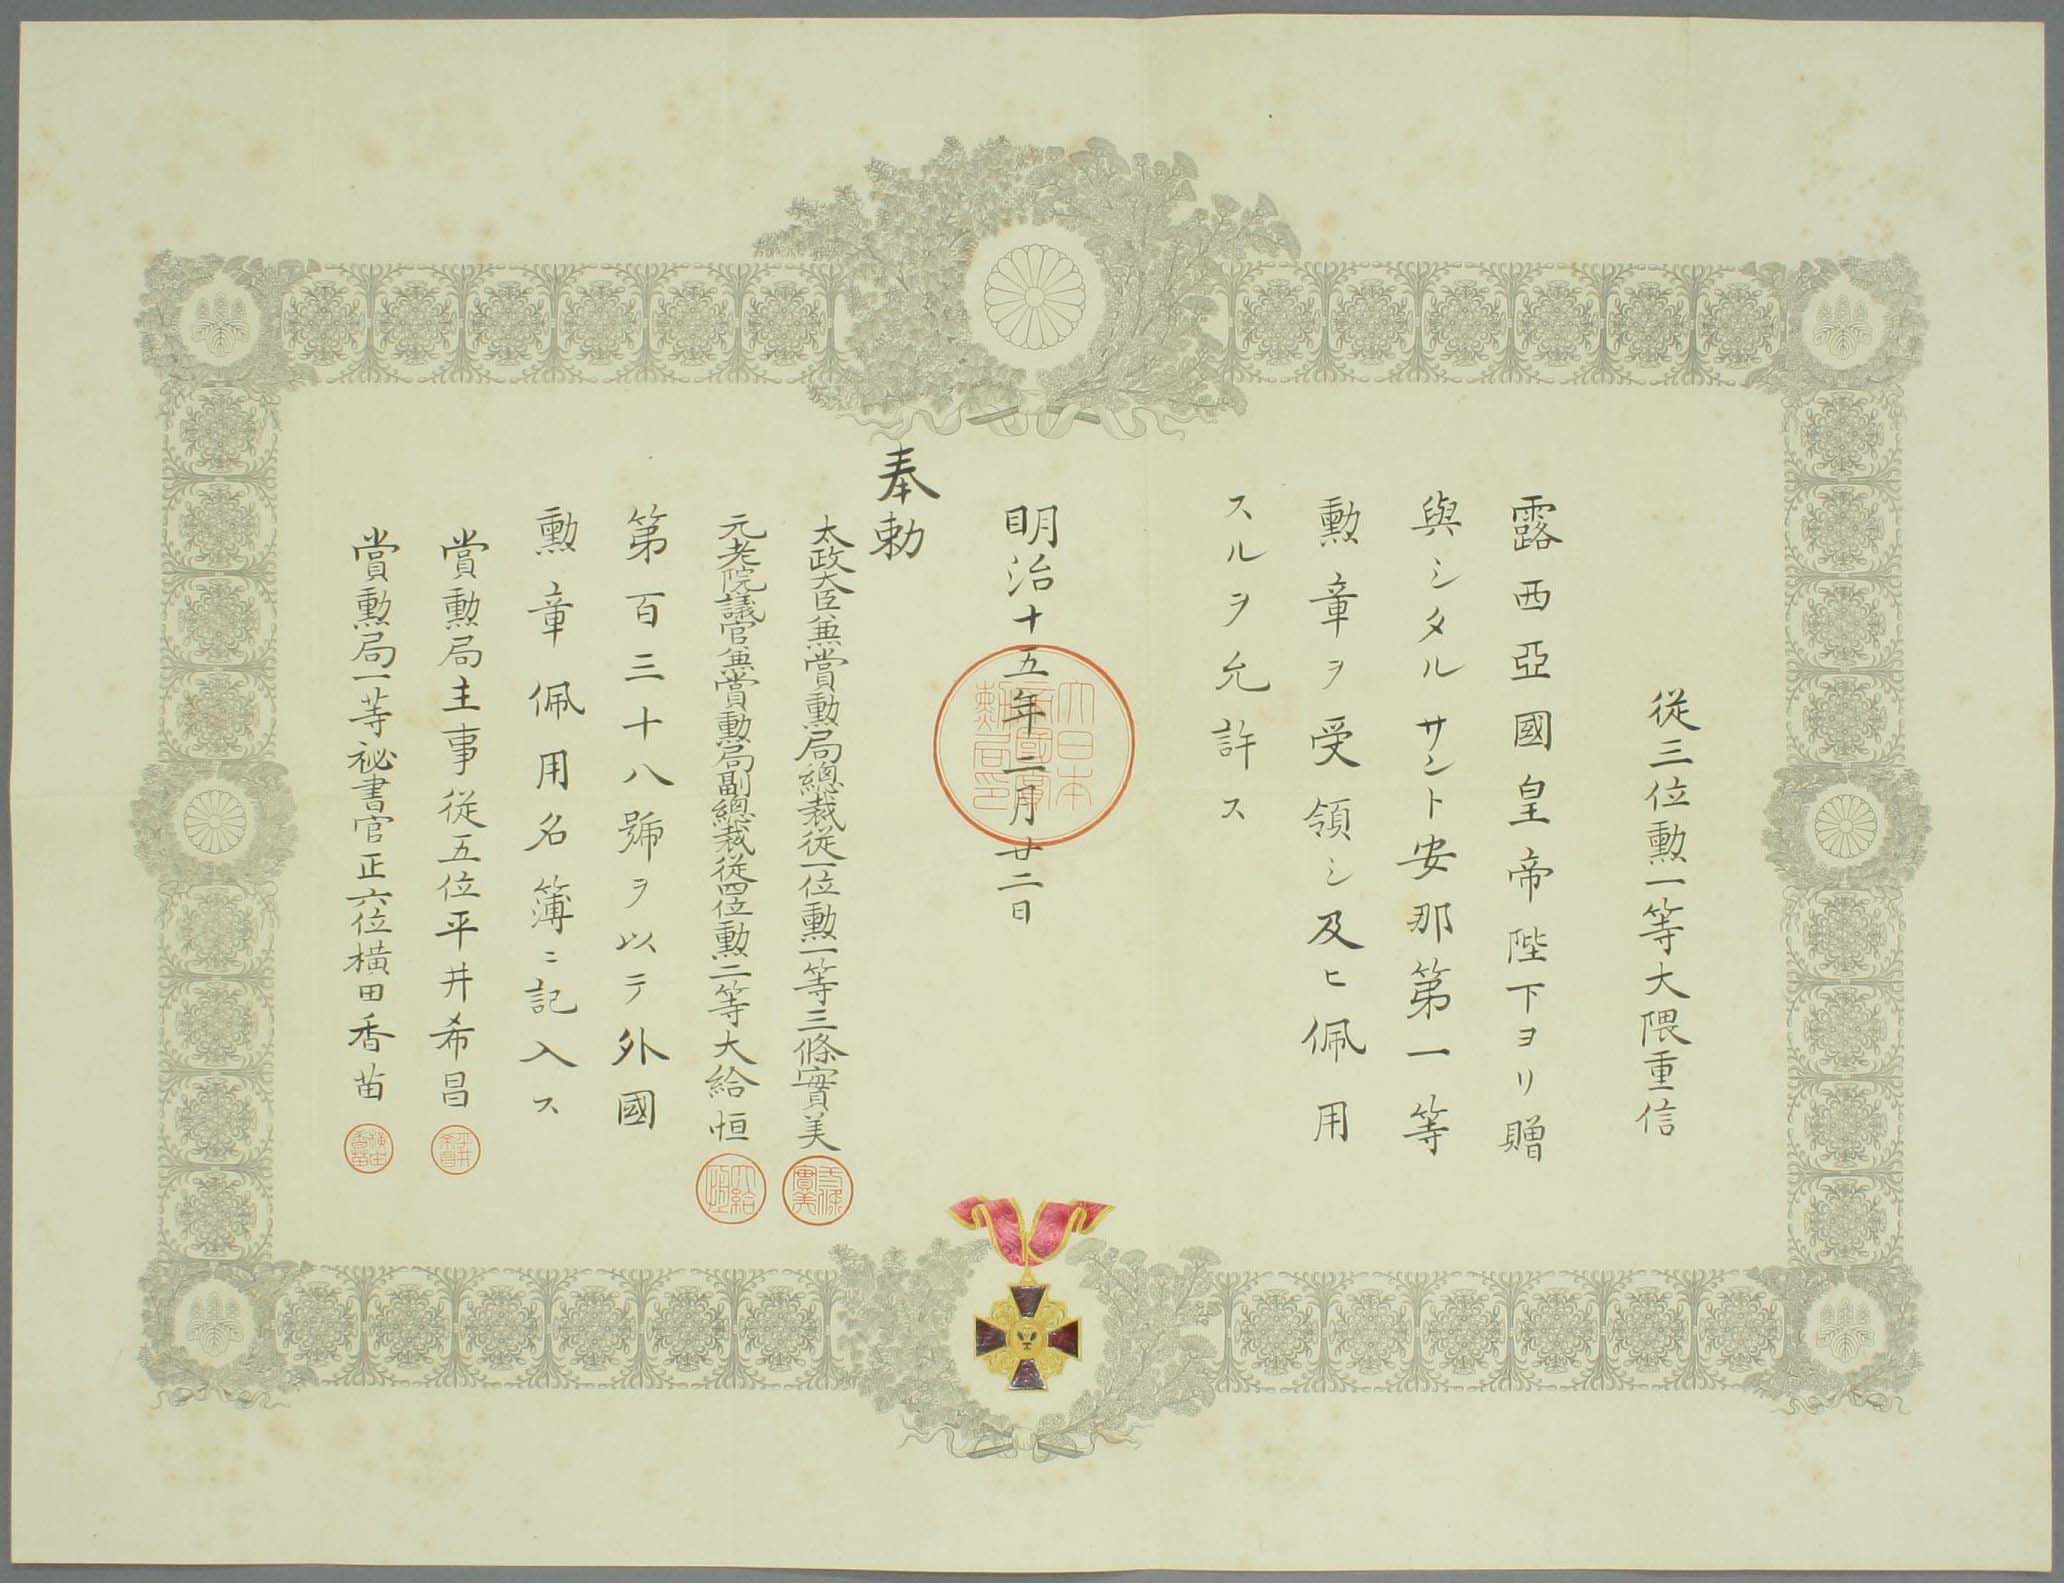 從三位勲一等大隈重信
露西亞國皇帝陛下ヨリ贈
與シタルサンド安那第一等
勲章ヲ受領シ及ヒ佩用
スルヲ允許ス
明治十五年三月廿二日
大日本
帝國賞
勲局印
奉勅
太政大臣兼賞勲局總裁從一位勲一等三條實美
三條
實美
元老院議官兼賞勲局副總裁從四位勲二等大給恒
大給
恒
第百三十八號ヲ以テ外國
勲章佩用名簿ニ記入ス
賞勲局主事從五位平井希昌
平井
希昌
賞勲局一等秘書官正六位横田香苗
横田
香苗